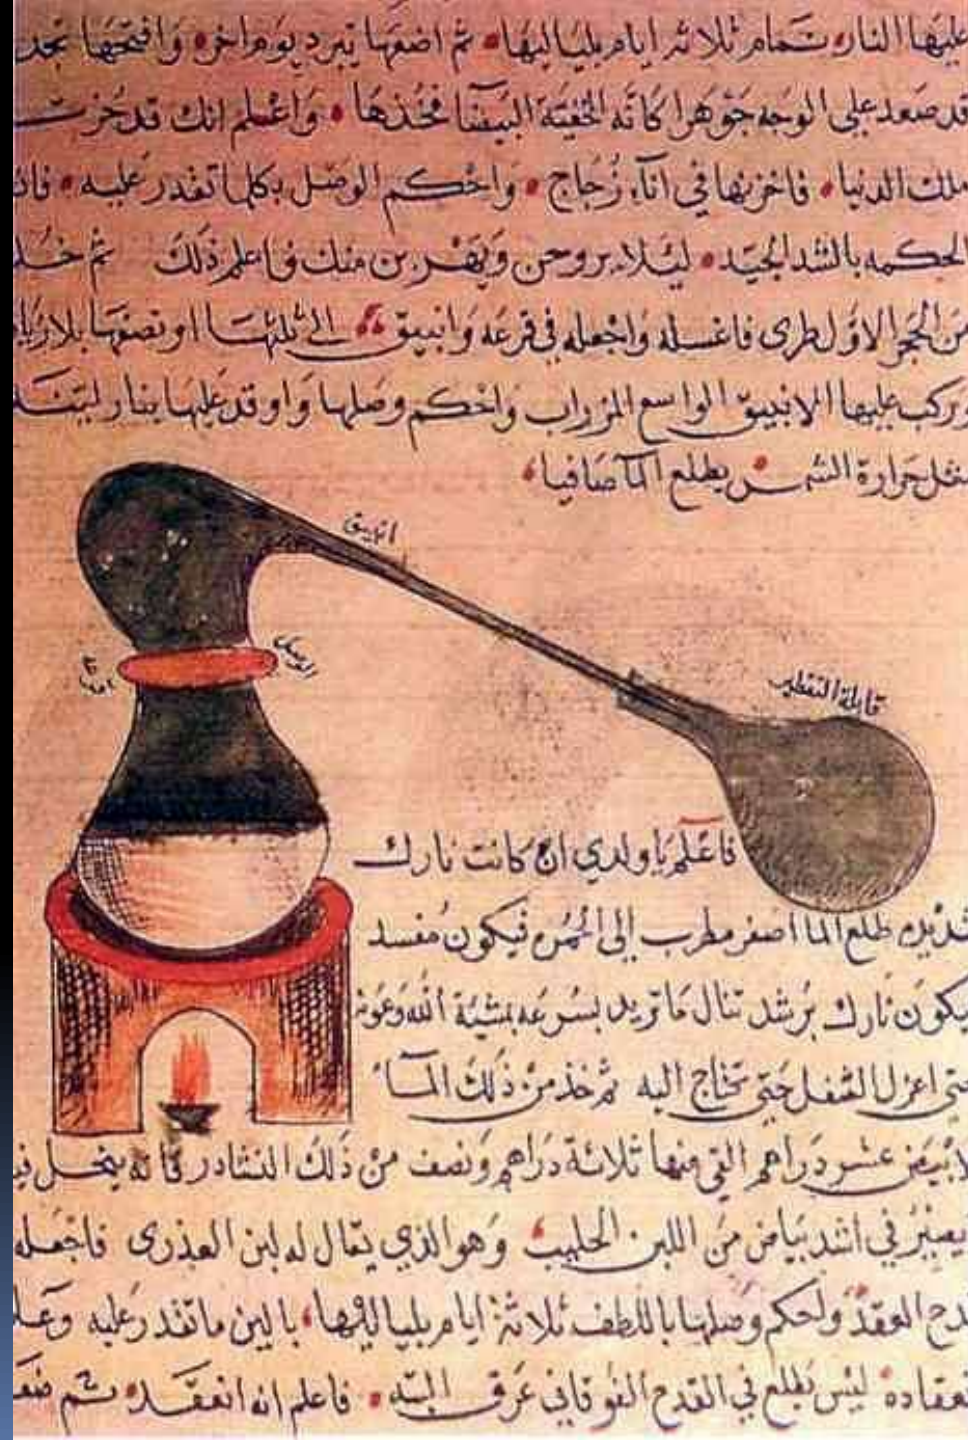 عليها النار تمام ثلاثة ايام بلياليها ثم اضعها تبرد يوم اخر وافتحها تجد
قد صعد على الوجه جوهرا كانه البيضا فخذها واعلم انك قد حزت
ملك الدنيا فاخزنها في انآء زجاج واحكم الوصل بكلما تقدر عليه فان
الحكمه بالشد الجيد ليلا يروحن ويهربن منك فاعلم ذلك ثم خذ
من الحجر الاول طرى فاغسله واجعله في قرعه وانبيق الى ثلثها او نصفها بلا
وركب عليها الانبيق الواسع المزراب واحكم وصلها واوقد عليها بنار لينه
مثل حرارة الشمس يطلع المآ صافيا
انبيق
الوصل
قابلة التقطير
فاعلم يا ولدي ان كانت نارك
شديده طلع الما اصفر مطرب الى الحمره فيكون مفسد
يكون نارك برشد تنال ما تريد بسرعه بمشية الله وعونه
حتى اعزل الثفل حتى تحتاج اليه ثم خذ من ذلك المآ
الابيض عشر دراهم القي فيها ثلاثة دراهم ونصف من ذلك النشادر فانه ينحل فيه
يصير في اشد بياض من اللبن الحليب وهو الذي يقال له لبن العذرى فاجعله
قدح العقد ولحكم وصلها باللطف ثلاثة ايام بلياليها بالين ما تقدر عليه
ليس يطلع في القدح الفوقاني عرق البته فاعلم انه انعقد ثم